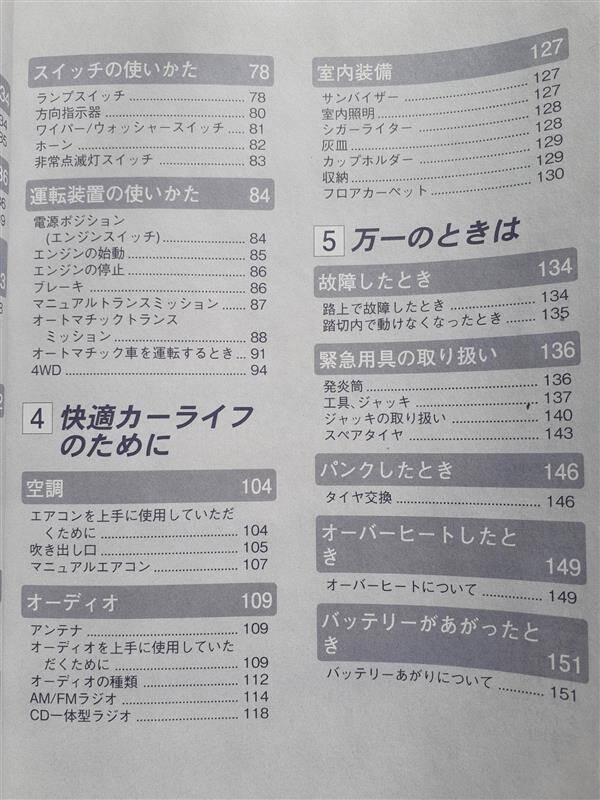 スイッチの使いかた 78
ランプスイッチ 78
方向指示器 80
ワイパー/ウォッシャースイッチ 81
ホーン 82
非常点滅灯スイッチ 83
運転装置の使いかた 84
電源ポジション
(エンジンスイッチ) 84
エンジンの始動 85
エンジンの停止 86
ブレーキ 86
マニュアルトランスミッション 87
オートマチックトランス
ミッション 88
オートマチック車を運転するとき 91
4WD 94
4 快適カーライフ
のために
空調 104
エアコンを上手に使用していただ
くために 104
吹き出し口 105
マニュアルエアコン 107
オーディオ 109
アンテナ 109
オーディオを上手に使用していた
だくために 109
オーディオの種類 112
AM/FMラジオ 114
CD一体型ラジオ 118
室内装備 127
サンバイザー 127
室内照明 127
シガーライター 128
灰皿 128
カップホルダー 129
収納 129
フロアカーペット 130
5 万一のときは
故障したとき 134
路上で故障したとき 134
踏切内で動けなくなったとき 135
緊急用具の取り扱い 136
発炎筒 136
工具、ジャッキ 137
ジャッキの取り扱い 140
スペアタイヤ 143
パンクしたとき 146
タイヤ交換 146
オーバーヒートしたと
き 149
オーバーヒートについて 149
バッテリーがあがったと
き 151
バッテリーあがりについて 151